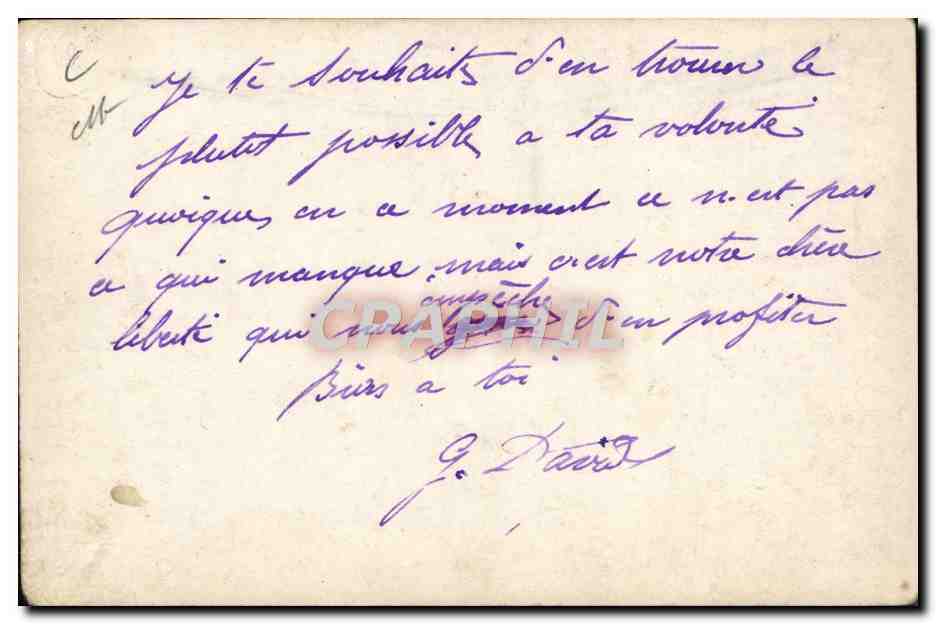 Je te souhaite d'en trouver le
plutot possible a ta volonté
quoique en ce moment ce n'est pas
ce qui manque mais c'est notre chère
empèche
liberté qui nous d'en profiter
CPAPHIL
Bien a toi
G. David